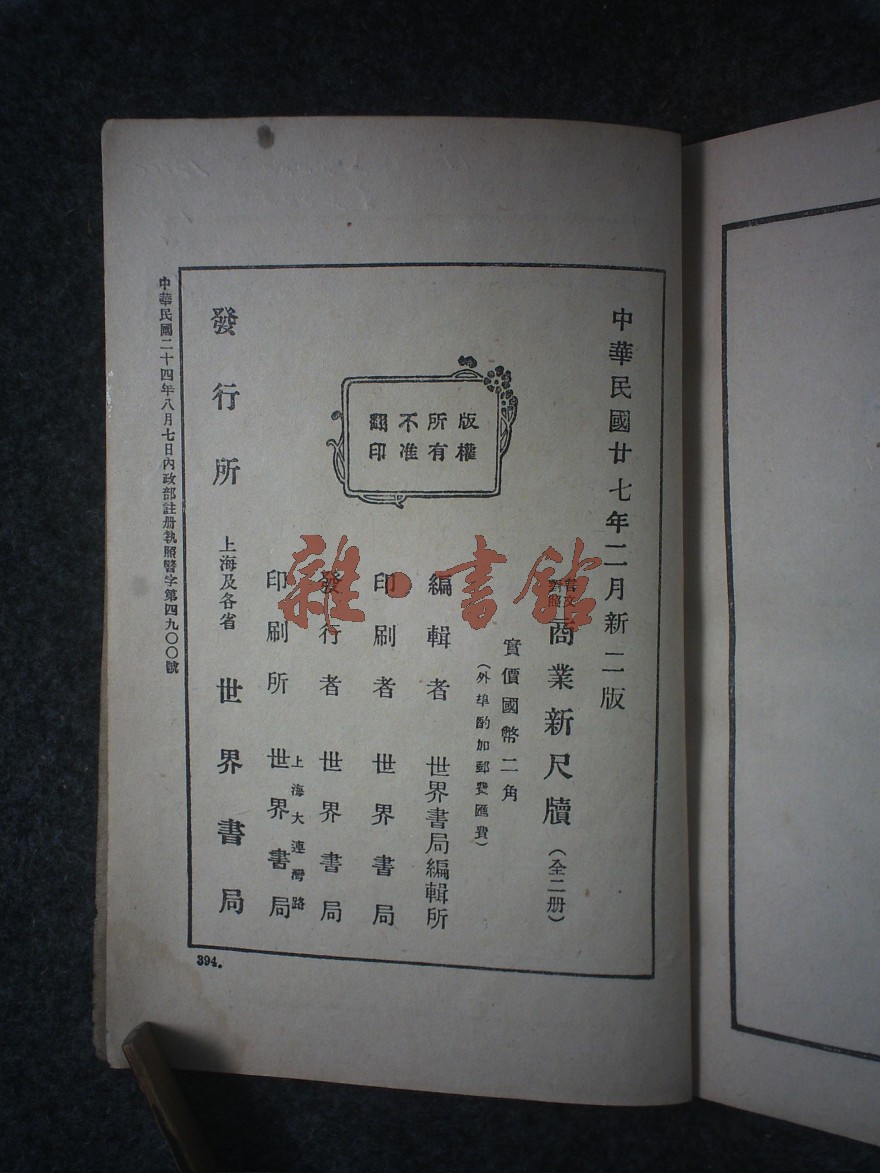 中華民國廿七年二月新二版
言文對照
商業新尺牘(全二册)
實價國幣二角
(外埠酌加郵費匯費)
版權
所有
不准
翻印
編輯者 世界書局編輯所
印刷者 世界書局
發行者 世界書局
上海大連灣路
印刷所 世界書局
發行所 上海及各省 世界書局
中華民國二十四年八月七日內政部註册執照警字第四九〇〇號
394.
雜·書館